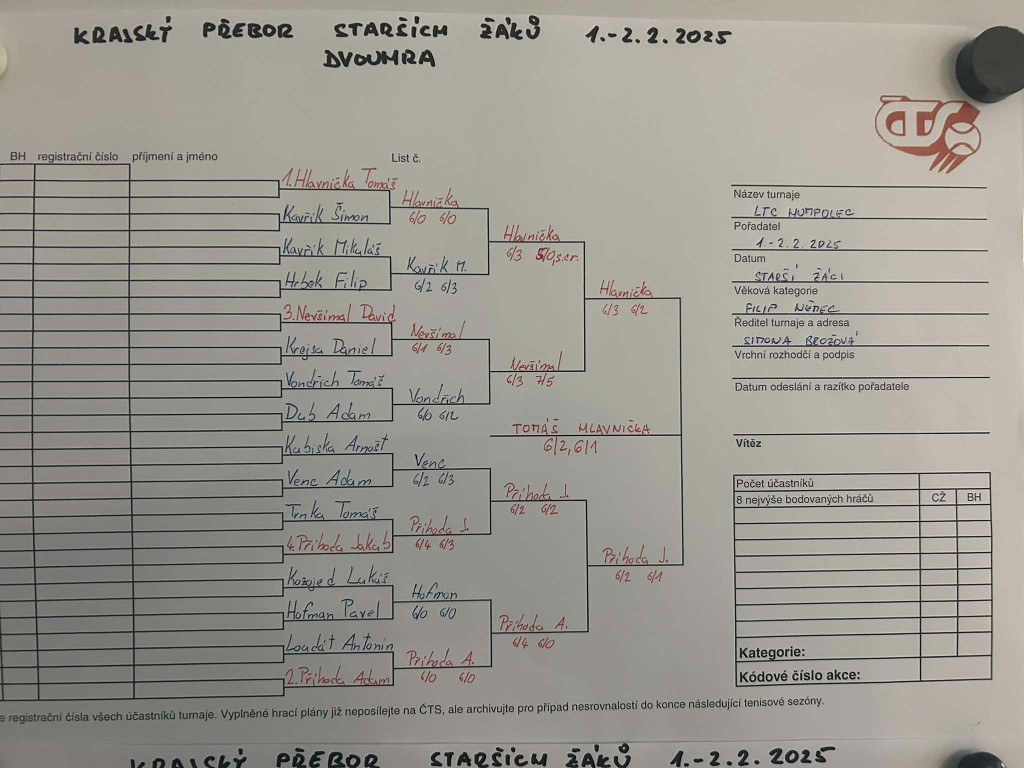 KRAJSKÝ PŘEBOR STARŠÍCH ŽÁKŮ 1.-2.2.2025
DVOUHRA
ČTS
BH registrační číslo příjmení a jméno List č.
1. Hlavnička Tomáš
Hlavnička
6/0 6/0
Kavřík Šimon
Hlavnička
6/3 5/0, scr.
Kavřík Mikuláš
Kavřík M.
6/2 6/3
Hrbek Filip
Hlavnička
6/3 6/2
3. Nevšímal David
Nevšímal
6/1 6/3
Krejsa Daniel
Nevšímal
6/3 7/5
Vondrich Tomáš
Vondrich
6/0 6/2
Dub Adam
TOMÁŠ HLAVNIČKA
6/2, 6/1
Kabiska Arnošt
Venc
6/2 6/3
Venc Adam
Příhoda J.
6/2 6/2
Trnka Tomáš
Příhoda J.
6/4 6/3
4. Příhoda Jakub
Příhoda J.
6/2 6/1
Kozojed Lukáš
Hofman
6/0 6/0
Hofman Pavel
Příhoda A.
6/4 6/0
Loudát Antonín
Příhoda A.
6/0 6/0
2. Příhoda Adam
Název turnaje
LTC HUMPOLEC
Pořadatel
1.-2.2.2025
Datum
STARŠÍ ŽÁCI
Věková kategorie
FILIP NĚMEC
Ředitel turnaje a adresa
SIMONA BROŽOVÁ
Vrchní rozhodčí a podpis
Datum odeslání a razítko pořadatele
Vítěz
Počet účastníků
8 nejvýše bodovaných hráčů CŽ BH
Kategorie:
Kódové číslo akce:
e registrační čísla všech účastníků turnaje. Vyplněné hrací plány již neposílejte na ČTS, ale archivujte pro případ nesrovnalostí do konce následující tenisové sezóny.
KRAJSKÝ PŘEBOR STARŠÍCH ŽÁKŮ 1.-2.2.2025